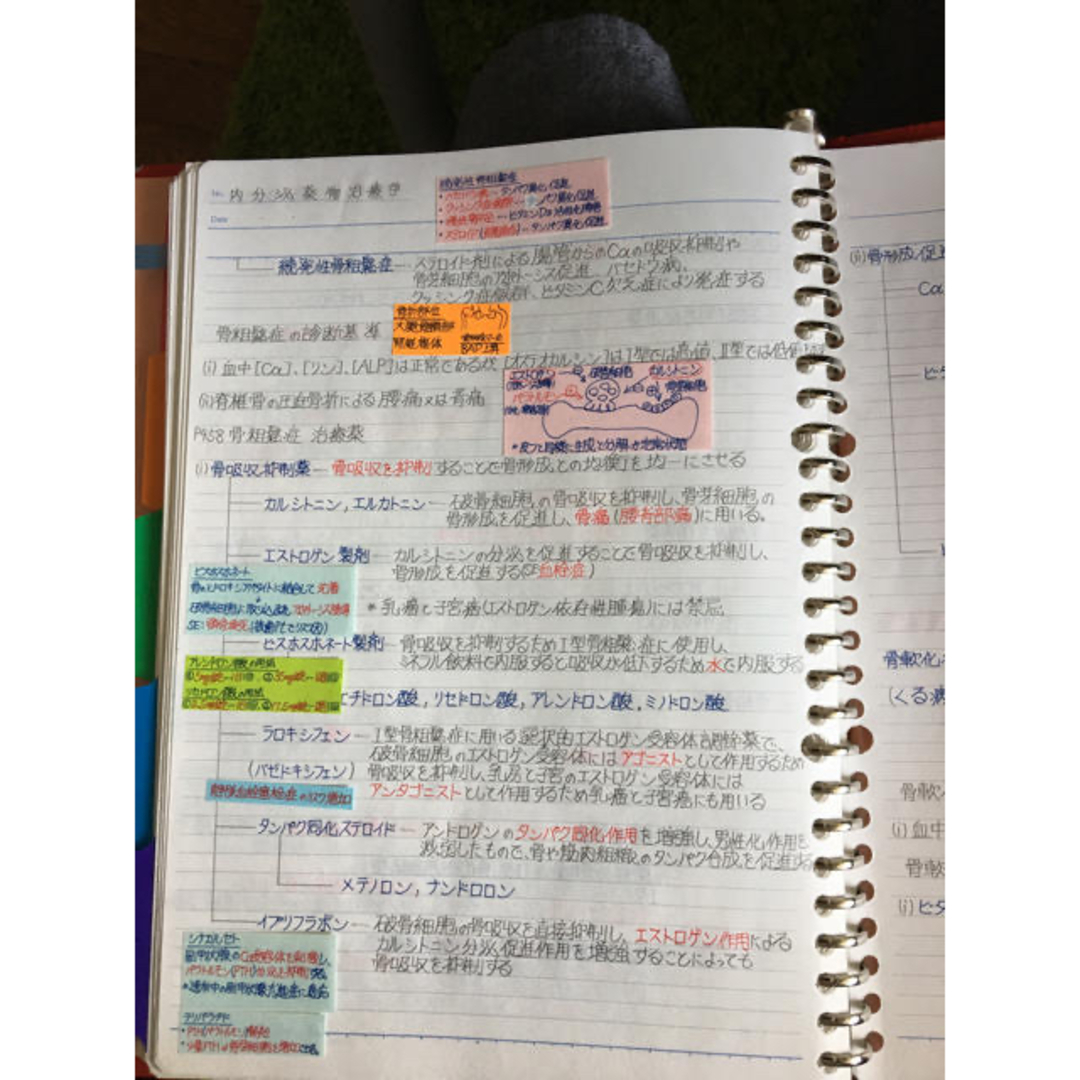 No. 内分泌薬物治療学
Date
続発性骨粗鬆症
タンパク異化促進
タンパク異化促進
タンパク異化促進
続発性骨粗鬆症 ― ステロイド剤による腸管からのCaの吸収抑制や
骨芽細胞のアポトーシス促進、バセドウ病、
クッシング症候群、ビタミンC欠乏症により発症する
骨折部位
大腿骨頸部
脊椎椎体
骨粗鬆症の診断基準
(i) 血中[Ca]、[リン]、[ALP]は正常であるが、[オステオカルシン]はI型では高値、II型では低値
(ii) 脊椎骨の圧迫骨折による腰痛又は背痛
エストロゲン
破骨細胞
カルシトニン
パラトルモン
P458 骨粗鬆症 治療薬
(i) 骨吸収抑制薬 ― 骨吸収を抑制することで骨形成との均衡を均一にさせる
カルシトニン, エルカトニン ― 破骨細胞の骨吸収を抑制し、骨芽細胞の
骨形成を促進し、骨痛(腰背部痛)に用いる。
エストロゲン製剤 ― カルシトニンの分泌を促進することで骨吸収を抑制し、
骨形成を促進する(SE 血栓症)
ビスホスホネート
骨のヒドロキシアパタイトに結合して沈着
* 乳癌と子宮癌(エストロゲン依存性腫瘍)には禁忌
ビスホスホネート製剤 ― 骨吸収を抑制するためI型骨粗鬆症に使用し、
ミネラル飲料で内服すると吸収が低下するため水で内服する
アレンドロン酸の用法
リセドロン酸の用法
エチドロン酸, リセドロン酸, アレンドロン酸, ミノドロン酸
ラロキシフェン ― I型骨粗鬆症に用いる選択的エストロゲン受容体調節薬で、
破骨細胞のエストロゲン受容体にはアゴニストとして作用するため
(バゼドキシフェン) 骨吸収を抑制し、乳房と子宮のエストロゲン受容体には
アンタゴニストとして作用するため乳癌と子宮癌にも用いる
静脈血栓塞栓症のリスク増加
タンパク同化ステロイド ― アンドロゲンのタンパク同化作用を増強し、男性化作用を
減弱したもので、骨や筋肉組織のタンパク合成を促進する
メテノロン, ナンドロロン
イプリフラボン ― 破骨細胞の骨吸収を直接抑制し、エストロゲン作用による
カルシトニン分泌促進作用を増強することによっても
骨吸収を抑制する
シナカルセト
テリパラチド
(ii) 骨形成促進
Ca
ビタ
骨軟化
(くる病
骨軟
(i) 血中
骨軟
(i) ビタ